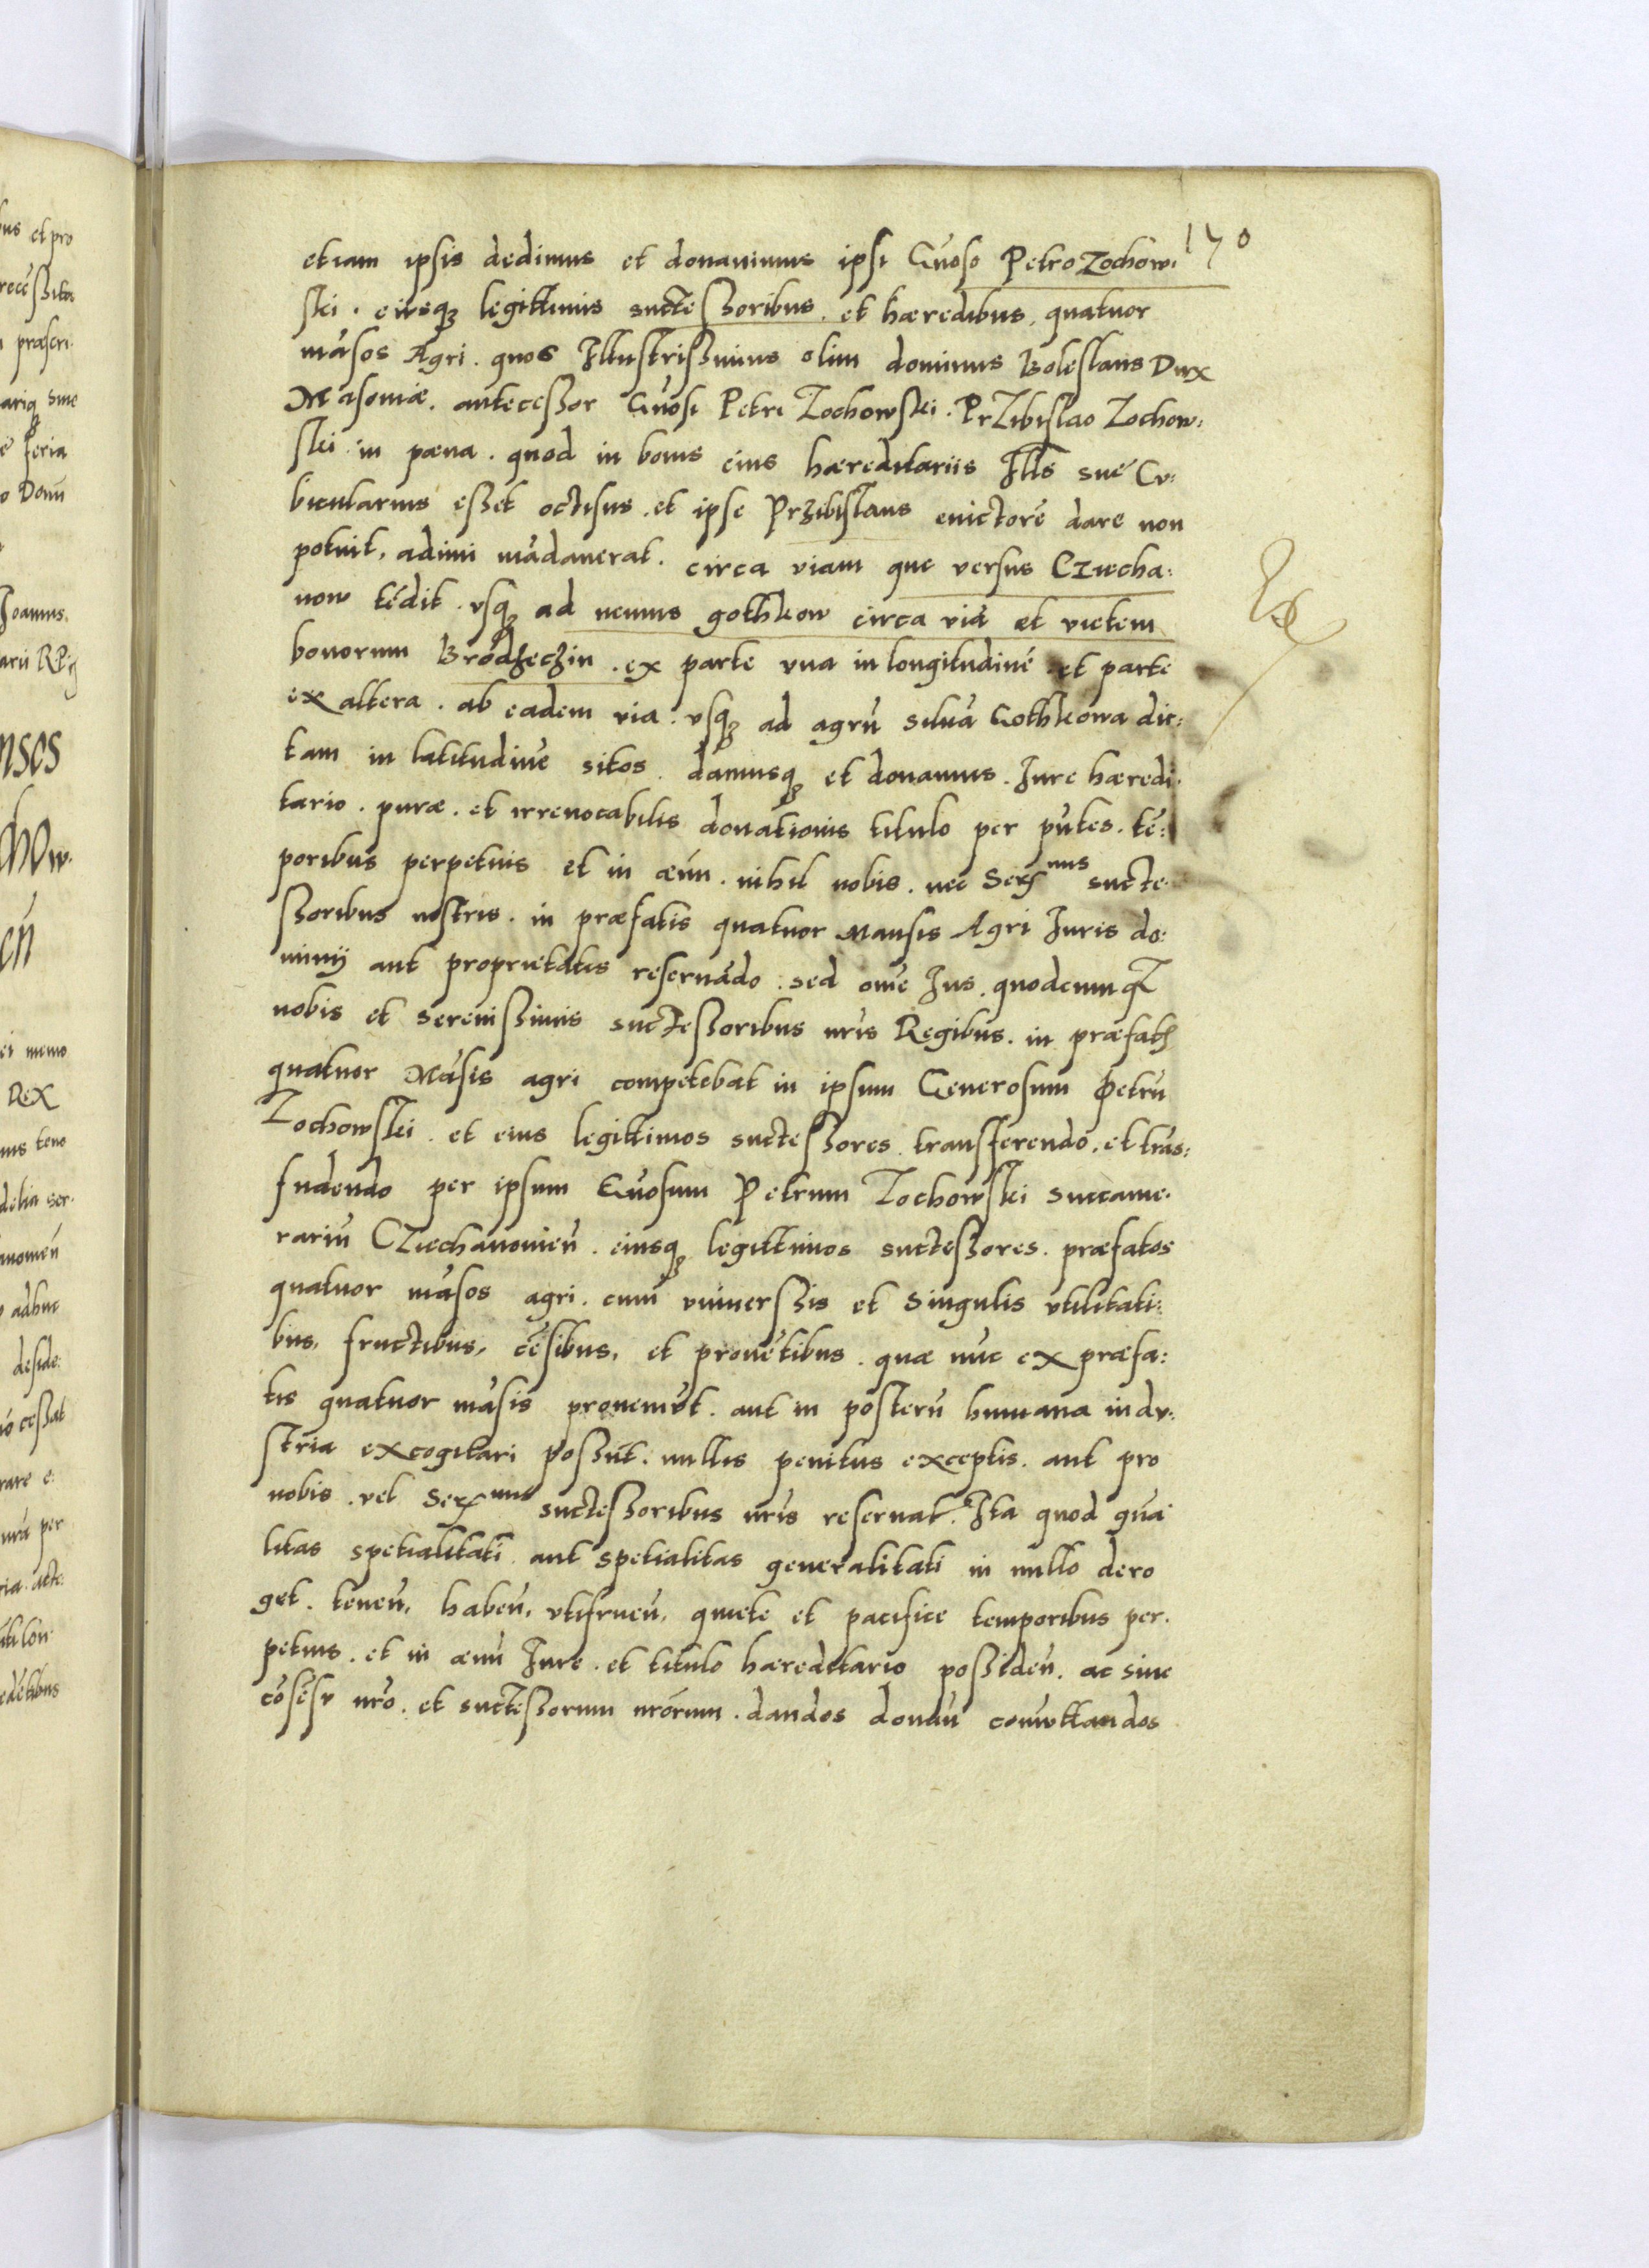 170
etiam ipsis dedimus et donavimus ipsi Gńoso Petro Zochow:
ski. eiusq3 legittimis suctessoribus. et hæredibus, quatuor
māsos Agri. quos Illustrissimus olim dominus Boleslaus Dux
Masoviæ. antecessor Gńosi Petri Zochowski. PrZibislao Zochow:
ski in pæna. quod in bonis eius hæreditariis Ills sue Cu:
bicularius esset octisus. et ipse Przibislaus evictorē dare non
potuit, adimi mādaverat. circa viam que versus CZiecha:
now tēdit. usq3 ad nemus gothkow circa viā et
bonorum Brodzeczin. ex parte una in longitudinē et parte
ex altera. ab eadem via. usq3 ad agrū silvā Gothkowa dic:
tam in latitudine sitos. damusq3 et donamus. Jure hæredi:
tario. puræ. et irrevocabilis donationis titulo per pńtes. tē:
poribus perpetuis et in ævū. nihil nobis. nec suctes
soribus nostris. in præfatis quatuor Mansis Agri Juris do:
minij aut proprietatis reservādo. sed omē Jus. quodcumq3
nobis et serenissimis suctessoribus nr̄is Regibus. in præfatis
quatuor Māsis agri competebat in ipsum Generosum Petrū
Zochowski. et eius legittimos suctessores transferendo. et trās:
fudendo per ipsum Gńosum Petrum Zochowski succame:
rariū CZiechanovień. eiusq3 legittimos suctessores. præfatos
quatuor māsos agri. cum universsis et Singulis utilitati:
bus, fructibus, cēsibus, et provētibus. quæ nūc ex præfa:
tis quatuor māsis proveniūt. aut in posterū humana indu:
stria excogitari possūt. nullis penitus exceptis. aut pro
nobis. vel suctessoribus nr̄is reservat. Ita quod gńa
litas spetialitati aut spetialitas generalitati in nullo dero
get. teneń, habeń, utifrueń, quiete et pacifice temporibus per:
petuis. et in ævū Jure. et titulo hæreditario possideń. ac sine
cōsēsu nr̄o. et suctessorum nr̄orum. dandos donań comuttandos